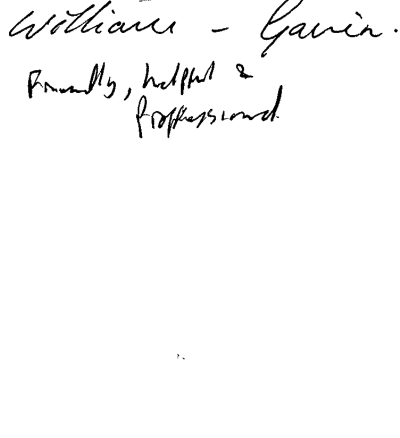 William - Gavin.
Friendly, helpful &
Proffessional.